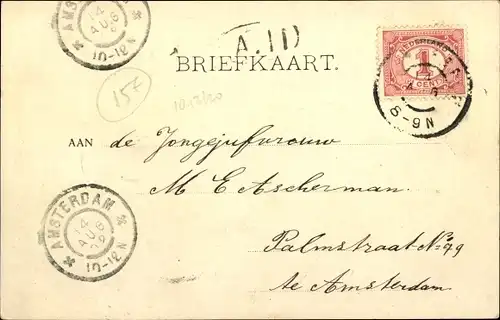 AMSTERDAM
14
AUG
10-12N
A.ID
BRIEFKAART.
NEDERLAND
1
CENT
8-9N
15€
AAN de Jongejufvrouw
M E Ascherman.
Palmstraat No. 99
te Amsterdam
AMSTERDAM
14
AUG
10-12N